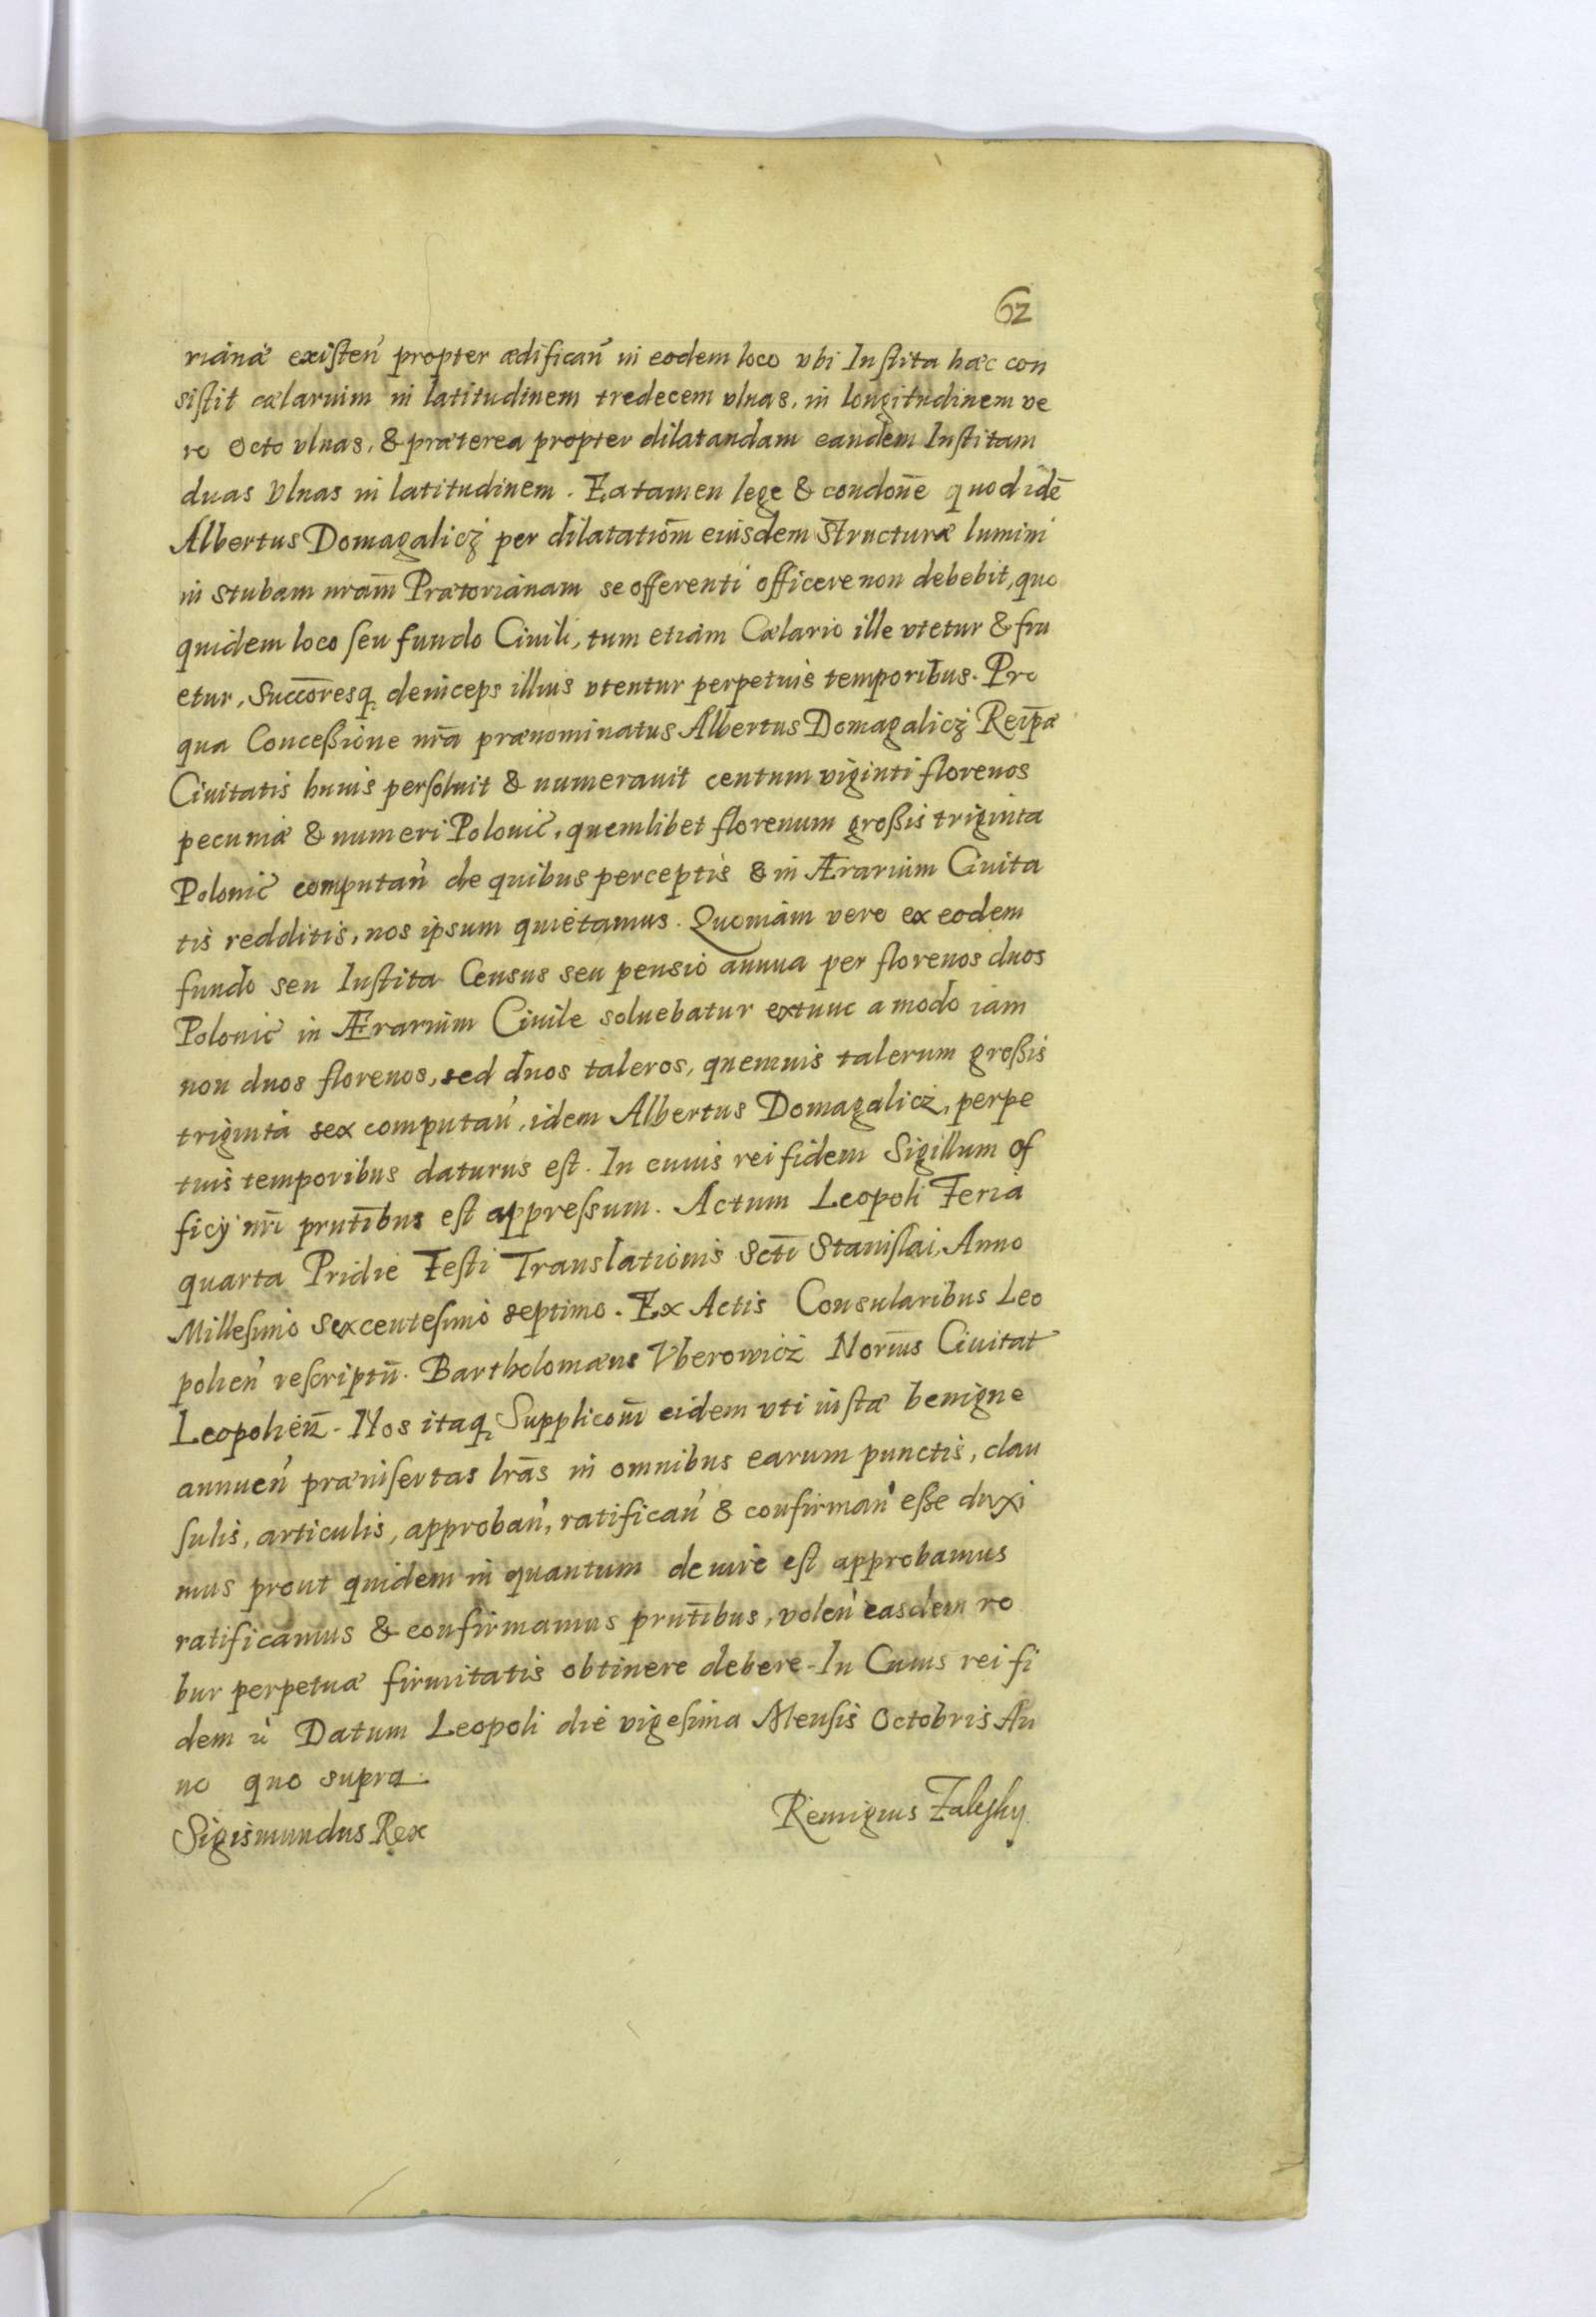 62
rianæ existeń propter ædificań in eodem loco vbi Instita hæc con
sistit cælarium in latitudinem tredecem vlnas, in longitudinem ve
ro Octo vlnas, & præterea propter dilatandam eandem Institam
duas Vlnas in latitudinem. Ea tamen lege & condone̅ quod ide̅
Albertus Domagalicz per dilatatiom̅ eiusdem structuræ lumini
in stubam nram̅ Prætorianam se offerenti officere non debebit, quo
quidem loco seu fundo Ciuili, tum etiam Cælario ille vtetur & fru
etur, Succor̅esq. deinceps illius vtentur perpetuis temporibus. Pro
qua Concessione nra̅ prænominatus Albertus Domagalicz Reip̅æ
Ciuitatis huius persoluit & numerauit centum viginti florenos
pecuniæ & numeri Polonic̅, quemlibet florenum grossis triginta
Polonic̅ computań de quibus perceptis & in Ærarium Ciuita
tis redditis, nos ipsum quietamus. Quoniam vero ex eodem
fundo seu Instita Census seu pensio annua per florenos duos
Polonic̅ in Ærarium Ciuile soluebatur extunc a modo iam
non duos florenos, sed duos taleros, quemuis talerum grossis
triginta sex computań, idem Albertus Domagalicz, perpe
tuis temporibus daturus est. In cuius rei fidem Sigillum of
ficij nri̅ prnti̅bus est appressum. Actum Leopoli Feria
quarta Pridie Festi Translationis Scti̅ Stanislai, Anno
Millesimo sexcentesimo septimo. Ex Actis Consularibus Leo
polień rescriptu̅. Bartholomæus Vberowicz Nori̅us Ciuitat
Leopolien̅. Nos itaq. Supplicom̅ eidem vti iustæ benigne
annueń præinsertas lra̅s in omnibus earum punctis, clau
sulis, articulis, approbań, ratificań & confirmań esse duxi
mus prout quidem in quantum de iure est approbamus
ratificamus & confirmamus prnti̅bus, voleń easdem ro
bur perpetuæ firmitatis obtinere debere. In Cuius rei fi
dem Datum Leopoli die vigesima Mensis Octobris An
no quo supra.
Sigismundus Rex
Remigius Zalesky